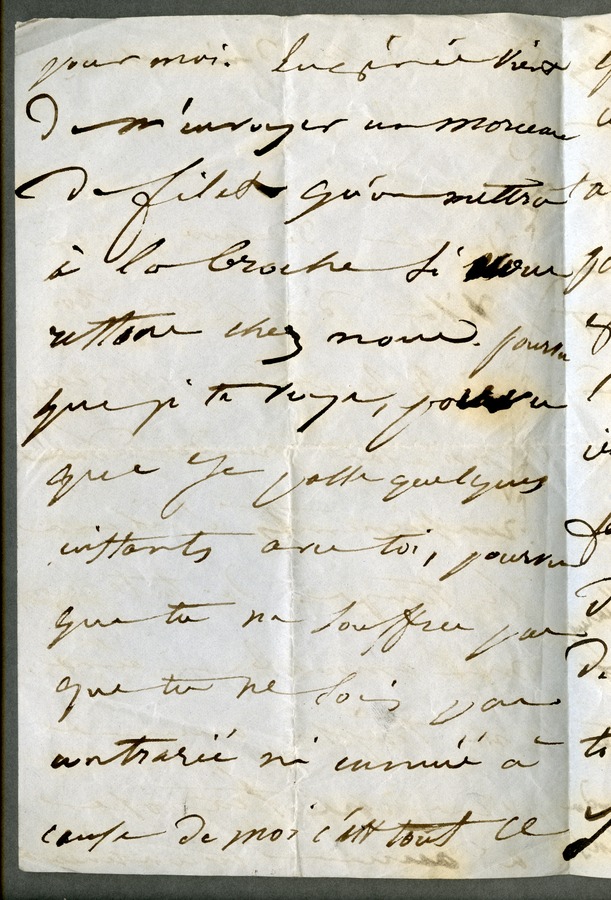 pour moi. Lucrèce vient
de m'envoyer un morceau
de filet qu'on mettra
à la broche si nous
restons chez nous. pourvu
que je te voye, pourvu
que je passe quelques
instants avec toi, pourvu
que tu ne souffres pas
que tu ne sois pas
contrarié ni ennuyé à
cause de moi c'est tout ce